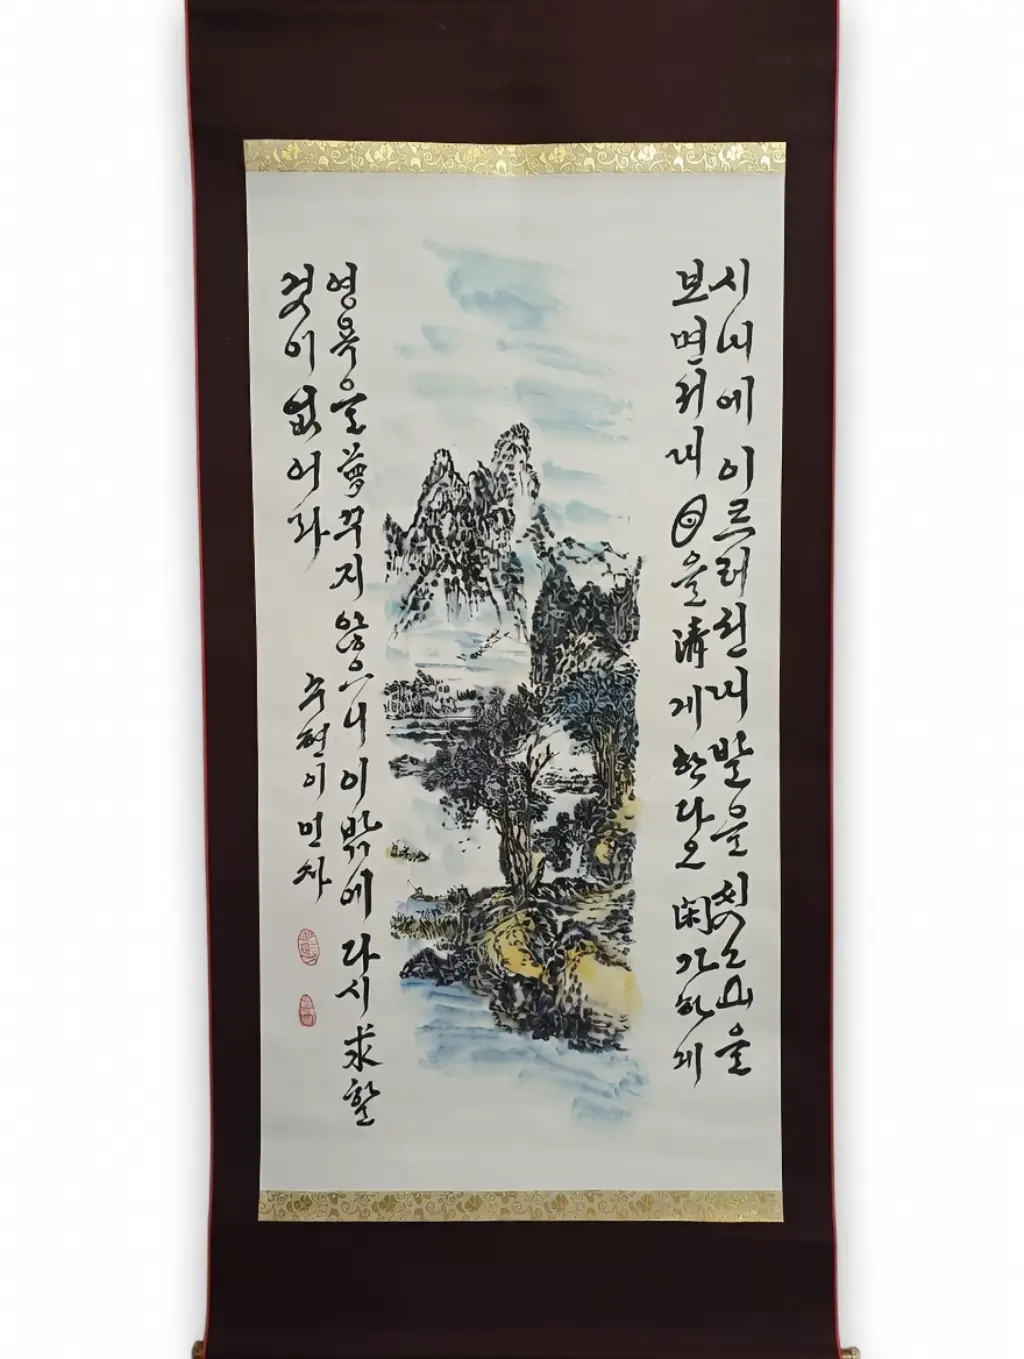 시내에 이르러선 내 발을 씻고 山을
보면서 내 目을 淸게 한다오 閑가하게
영욕을 夢꾸지 않으니 이 밖에 다시 求할
것이 없어라
수현 이민자